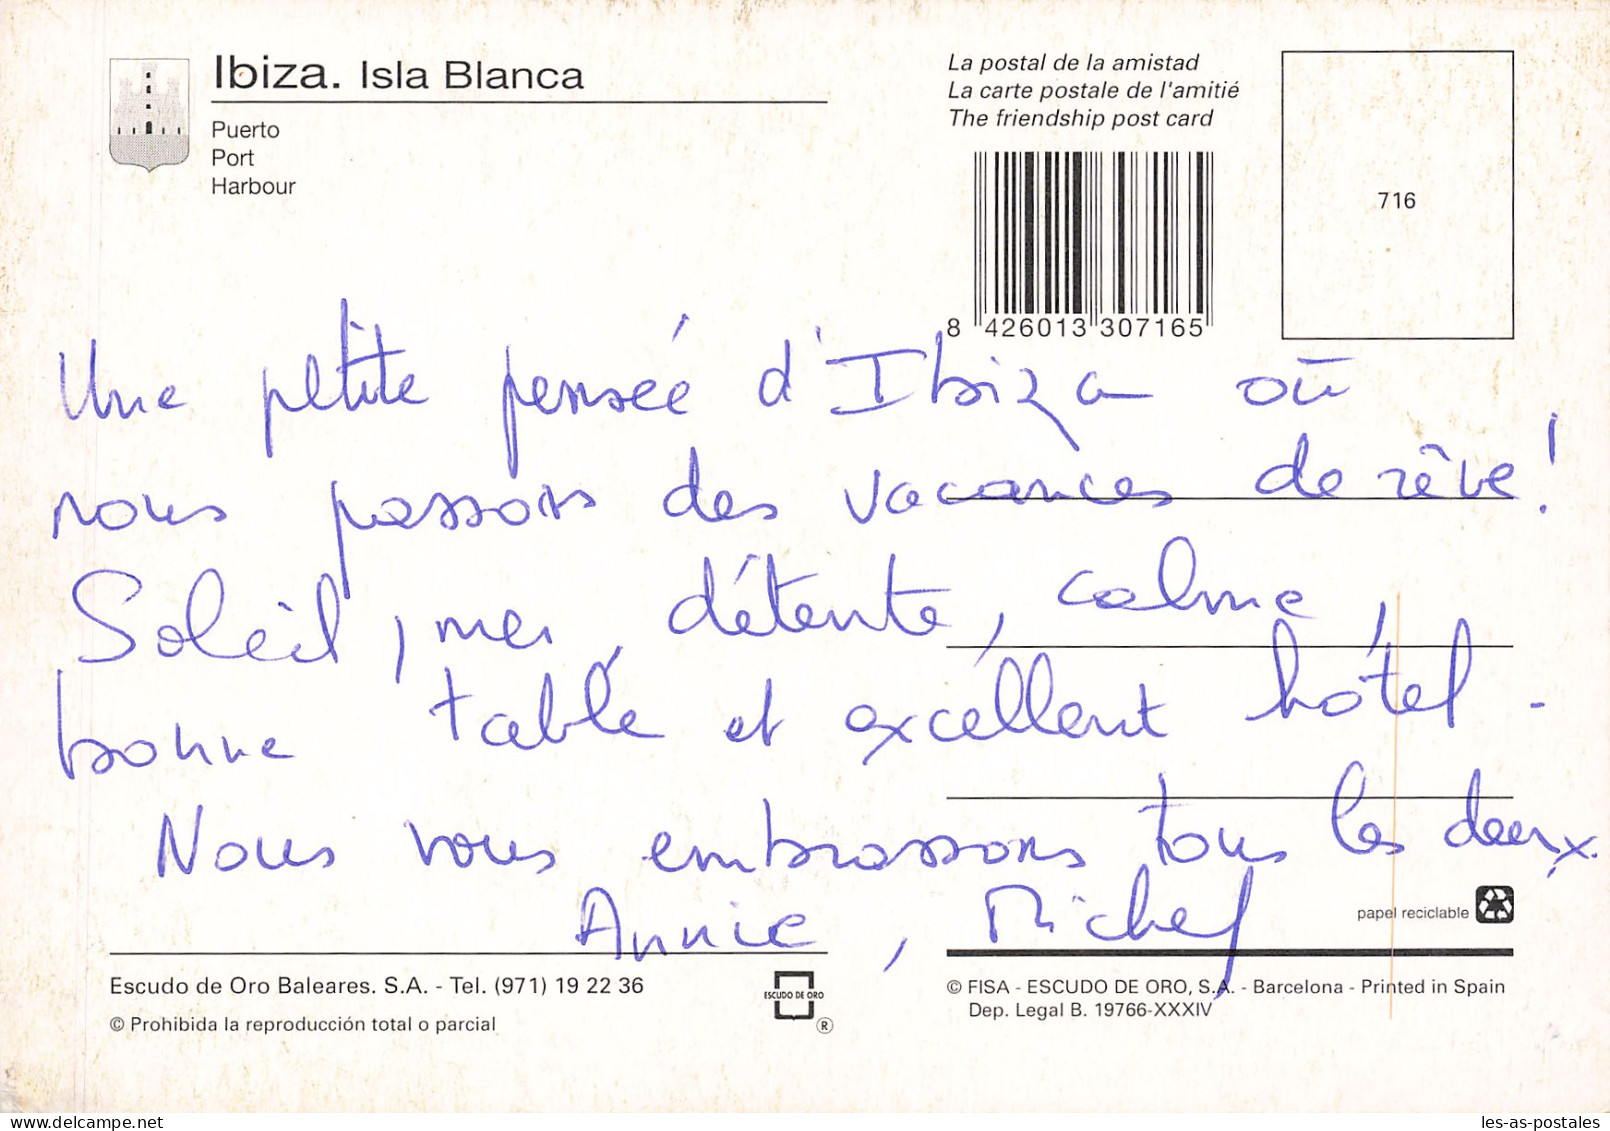 Ibiza. Isla Blanca
Puerto
Port
Harbour
La postal de la amistad
La carte postale de l'amitié
The friendship post card
8 426013 307165
716
Une petite pensée d'Ibiza où
nous passons des vacances de rêve !
Soleil, mer, détente, calme,
bonne table et excellent hôtel -
Nous vous embrassons tous les deux.
Annie, Michel
papel reciclable
Escudo de Oro Baleares. S.A. - Tel. (971) 19 22 36
© Prohibida la reproducción total o parcial
ESCUDO DE ORO
®
© FISA - ESCUDO DE ORO, S.A. - Barcelona - Printed in Spain
Dep. Legal B. 19766-XXXIV
les-as-postales